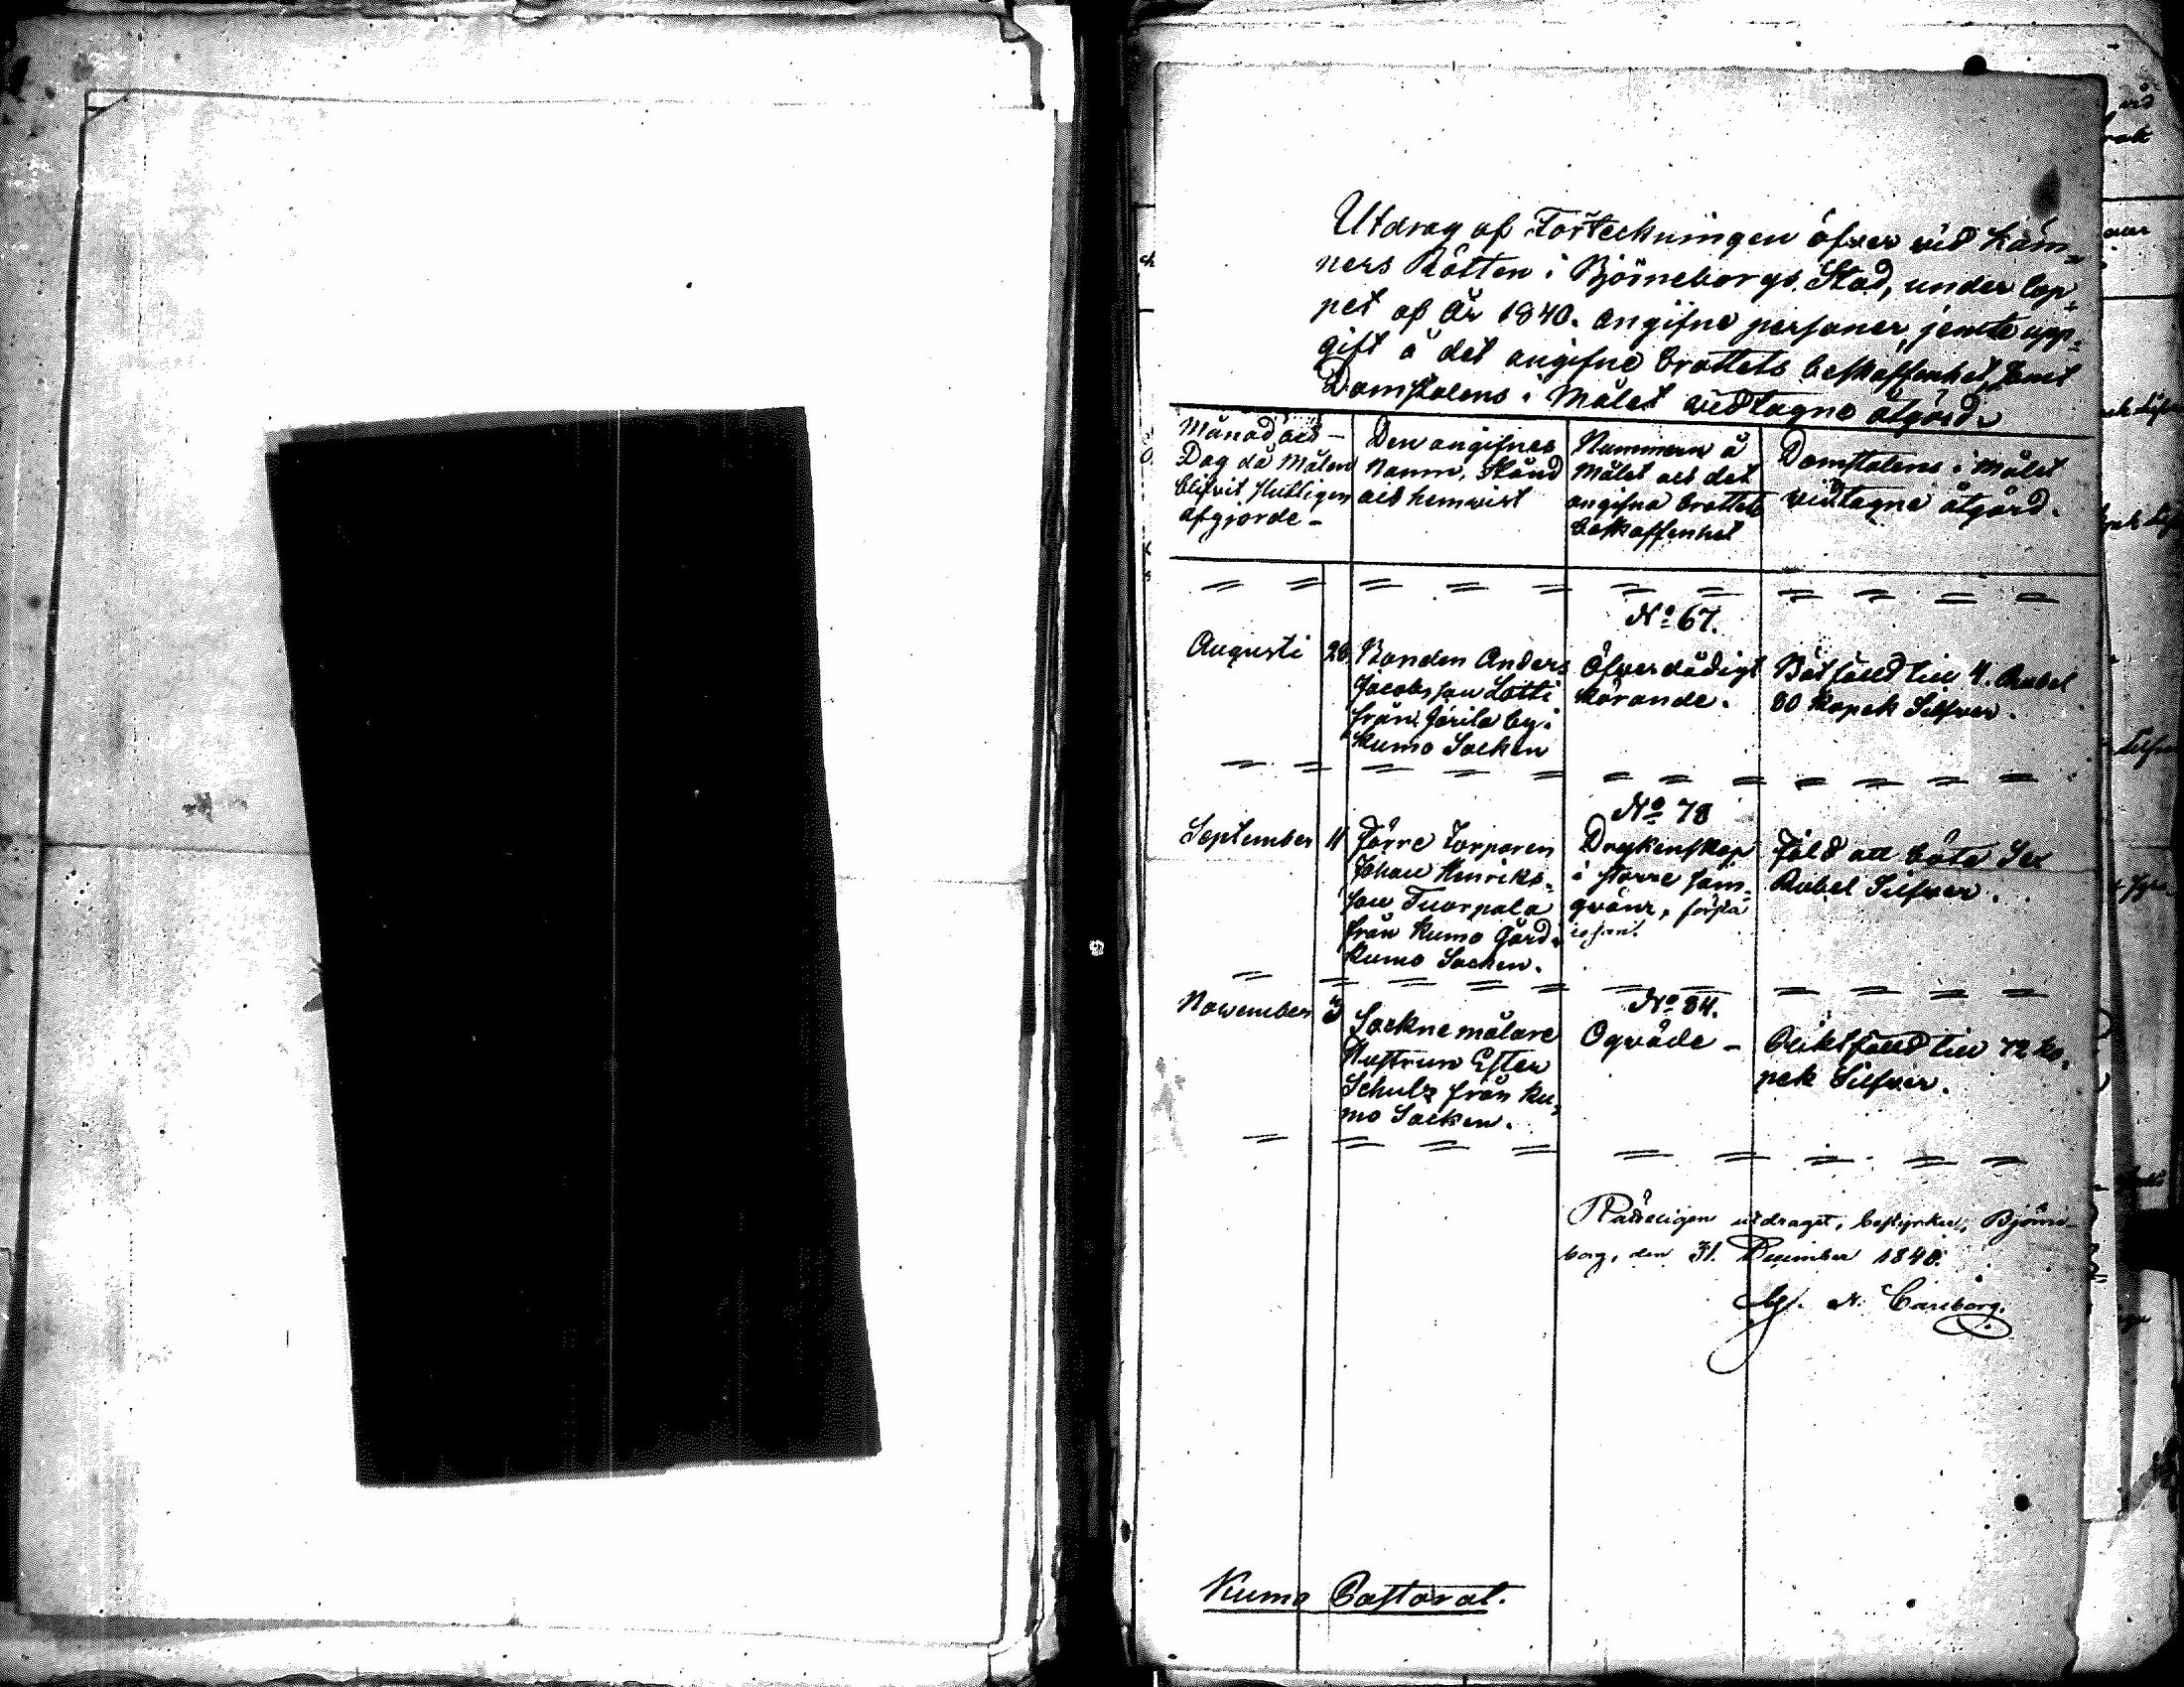 Utdrag af Förteckningen öfver vid Käm=
ners Rätten i Björneborgs Stad, under lop=
pet af År 1840. angifne personer, jemte upp=
gift å det angifne brottets beskaffenhet, samt
Domstolens i Målet vidtagne åtgärd.
Månad och
Dag då Målen
blifvit slutligen
afgjorde –
Den angifnes
Namn, Stånd
och hemvist
Nummern å
Målet och det
angifna brottets
beskaffenhet
Domstolens i Målet
vidtagne åtgärd.
No 67.
Augusti
Bonden Anders
Jacobsson Lotti
från Järilä by i
Kumo Socken
Öfverdådigt
körande.
Bötfälld till 4. Rubel
80 Kopek Silfver.
No 78
September 11
Förre Torparen
Johan Henriks=
son Tuorpala
från Kumo Gård.
Kumo Socken.
Dryckenskap
i större sam=
qväm, första
resan.
Fäld att böta Sex
Rubel Silfver.
No 84.
November 3
Socknemålare
Hustrun Ester
Schulz från Ku=
mo Socken.
Oqväde –
Pliktfälld till 72 Ko=
pek Silfver.
Rätteligen utdraget, bestyrker, Björne-
borg, den 31. December 1840.
N. Careborg.
Kumo Pastorat.